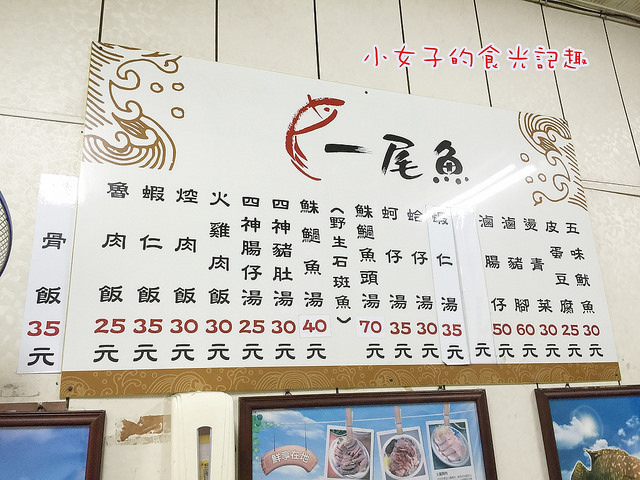 小女子的食光記趣
一尾魚
骨飯 35元
魯肉飯 25元
蝦仁飯 35元
焢肉飯 30元
火雞肉飯 30元
四神腸仔湯 25元
四神豬肚湯 30元
鮢鯤魚湯 40元
(野生石斑魚)
鮢鯤魚頭湯 70元
蚵仔湯 35元
蛤仔湯 30元
蝦仁湯 35元
元
滷腸仔 50元
滷豬腳 60元
燙青菜 30元
皮蛋豆腐 25元
五味魷魚 30元
鮮享在地